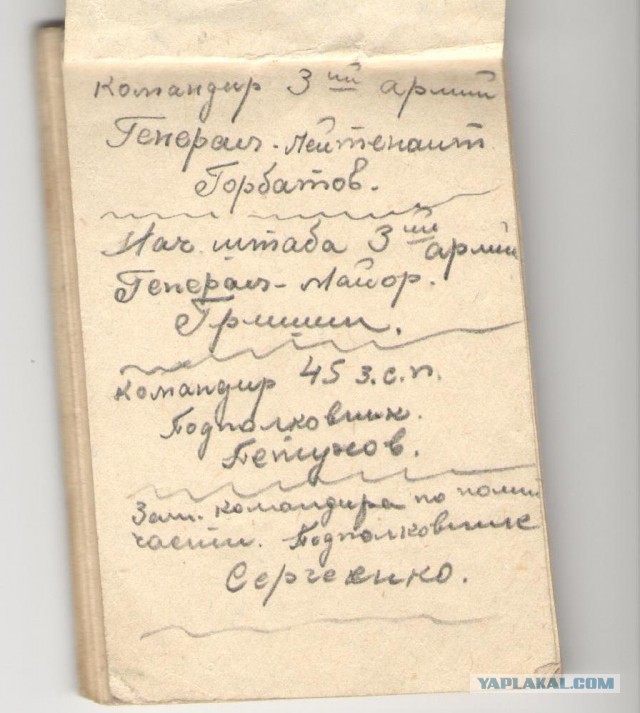 командир 3ий армий
Генерал-лейтенант
Горбатов.
Нач. штаба 3ий армий
Генерал-майор.
Гришин.
командир 45 з.с.п.
Подполковник.
Петунов.
Зам. командира по полит
части. Подполковник
Сергеенко.
YAPLAKAL.COM